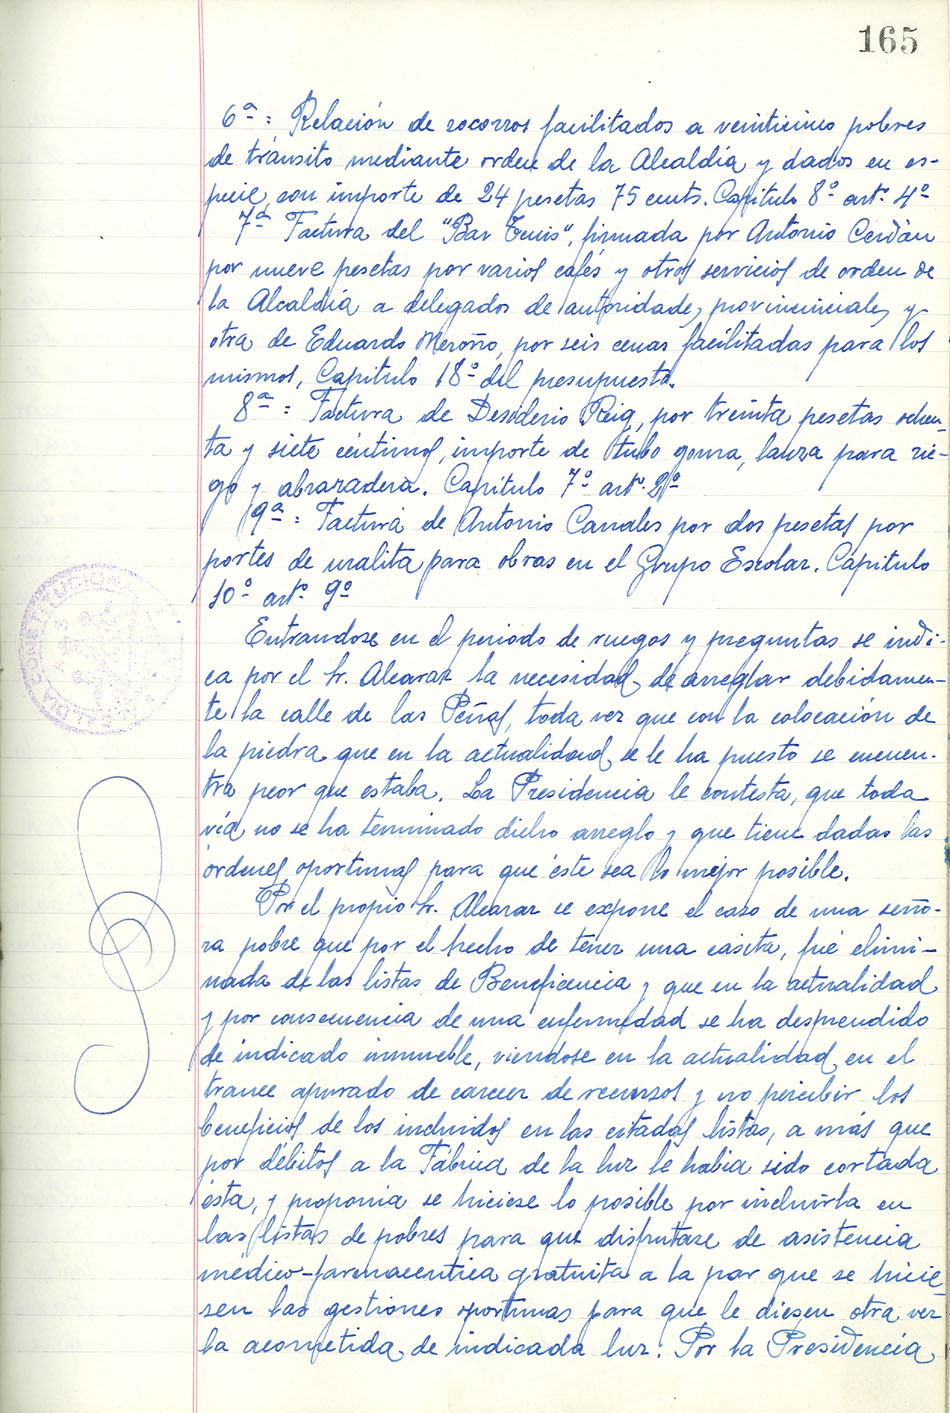 165
6ª: Relación de socorros facilitados a veinticinco pobres
de tránsito mediante orden de la Alcaldía y dados en es-
pecie, con importe de 24 pesetas 75 cents. Capítulo 8º artº 4º
7ª Factura del "Bar Tenis", firmada por Antonio Cerdán
por nueve pesetas por varios cafés y otros servicios de orden de
la Alcaldía a delegados de autoridades provinciales y
otra de Eduardo Meroño, por seis cenas facilitadas para los
mismos, Capítulo 18º del presupuesto.
8ª: Factura de Desiderio Reig, por treinta pesetas ochen-
ta y siete céntimos, importe de tubo goma, lanza para rie-
go y abrazadera. Capítulo 7º artº 2º
9ª: Factura de Antonio Canales por dos pesetas por
portes de uralita para obras en el Grupo Escolar. Capítulo
10º artº 9º
Entrandose en el periodo de ruegos y preguntas se indi-
ca por el Sr. Alcaraz la necesidad de arreglar debidamen-
te la calle de las Peñas, toda vez que con la colocación de
la piedra que en la actualidad se le ha puesto se encuen-
tra peor que estaba. La Presidencia le contesta, que toda
vía no se ha terminado dicho arreglo y que tiene dadas las
órdenes oportunas para que éste sea lo mejor posible.
Por el propio Sr. Alcaraz se expone el caso de una seño-
ra pobre que por el hecho de tener una casita, fué elimi-
nada de las listas de Beneficencia y que en la actualidad
y por consecuencia de una enfermedad se ha desprendido
de indicado inmueble, viendose en la actualidad en el
trance apurado de carecer de recursos y no percibir los
beneficios de los incluidos en las citadas listas, a más que
por débitos a la Fábrica de la luz le habia sido cortada
ésta, y proponia se hiciese lo posible por incluirla en
las listas de pobres para que disfrutase de asistencia
médico-farmaceutica gratuita a la par que se hicie-
sen las gestiones oportunas para que le diesen otra vez
la acometida de indicada luz. Por la Presidencia